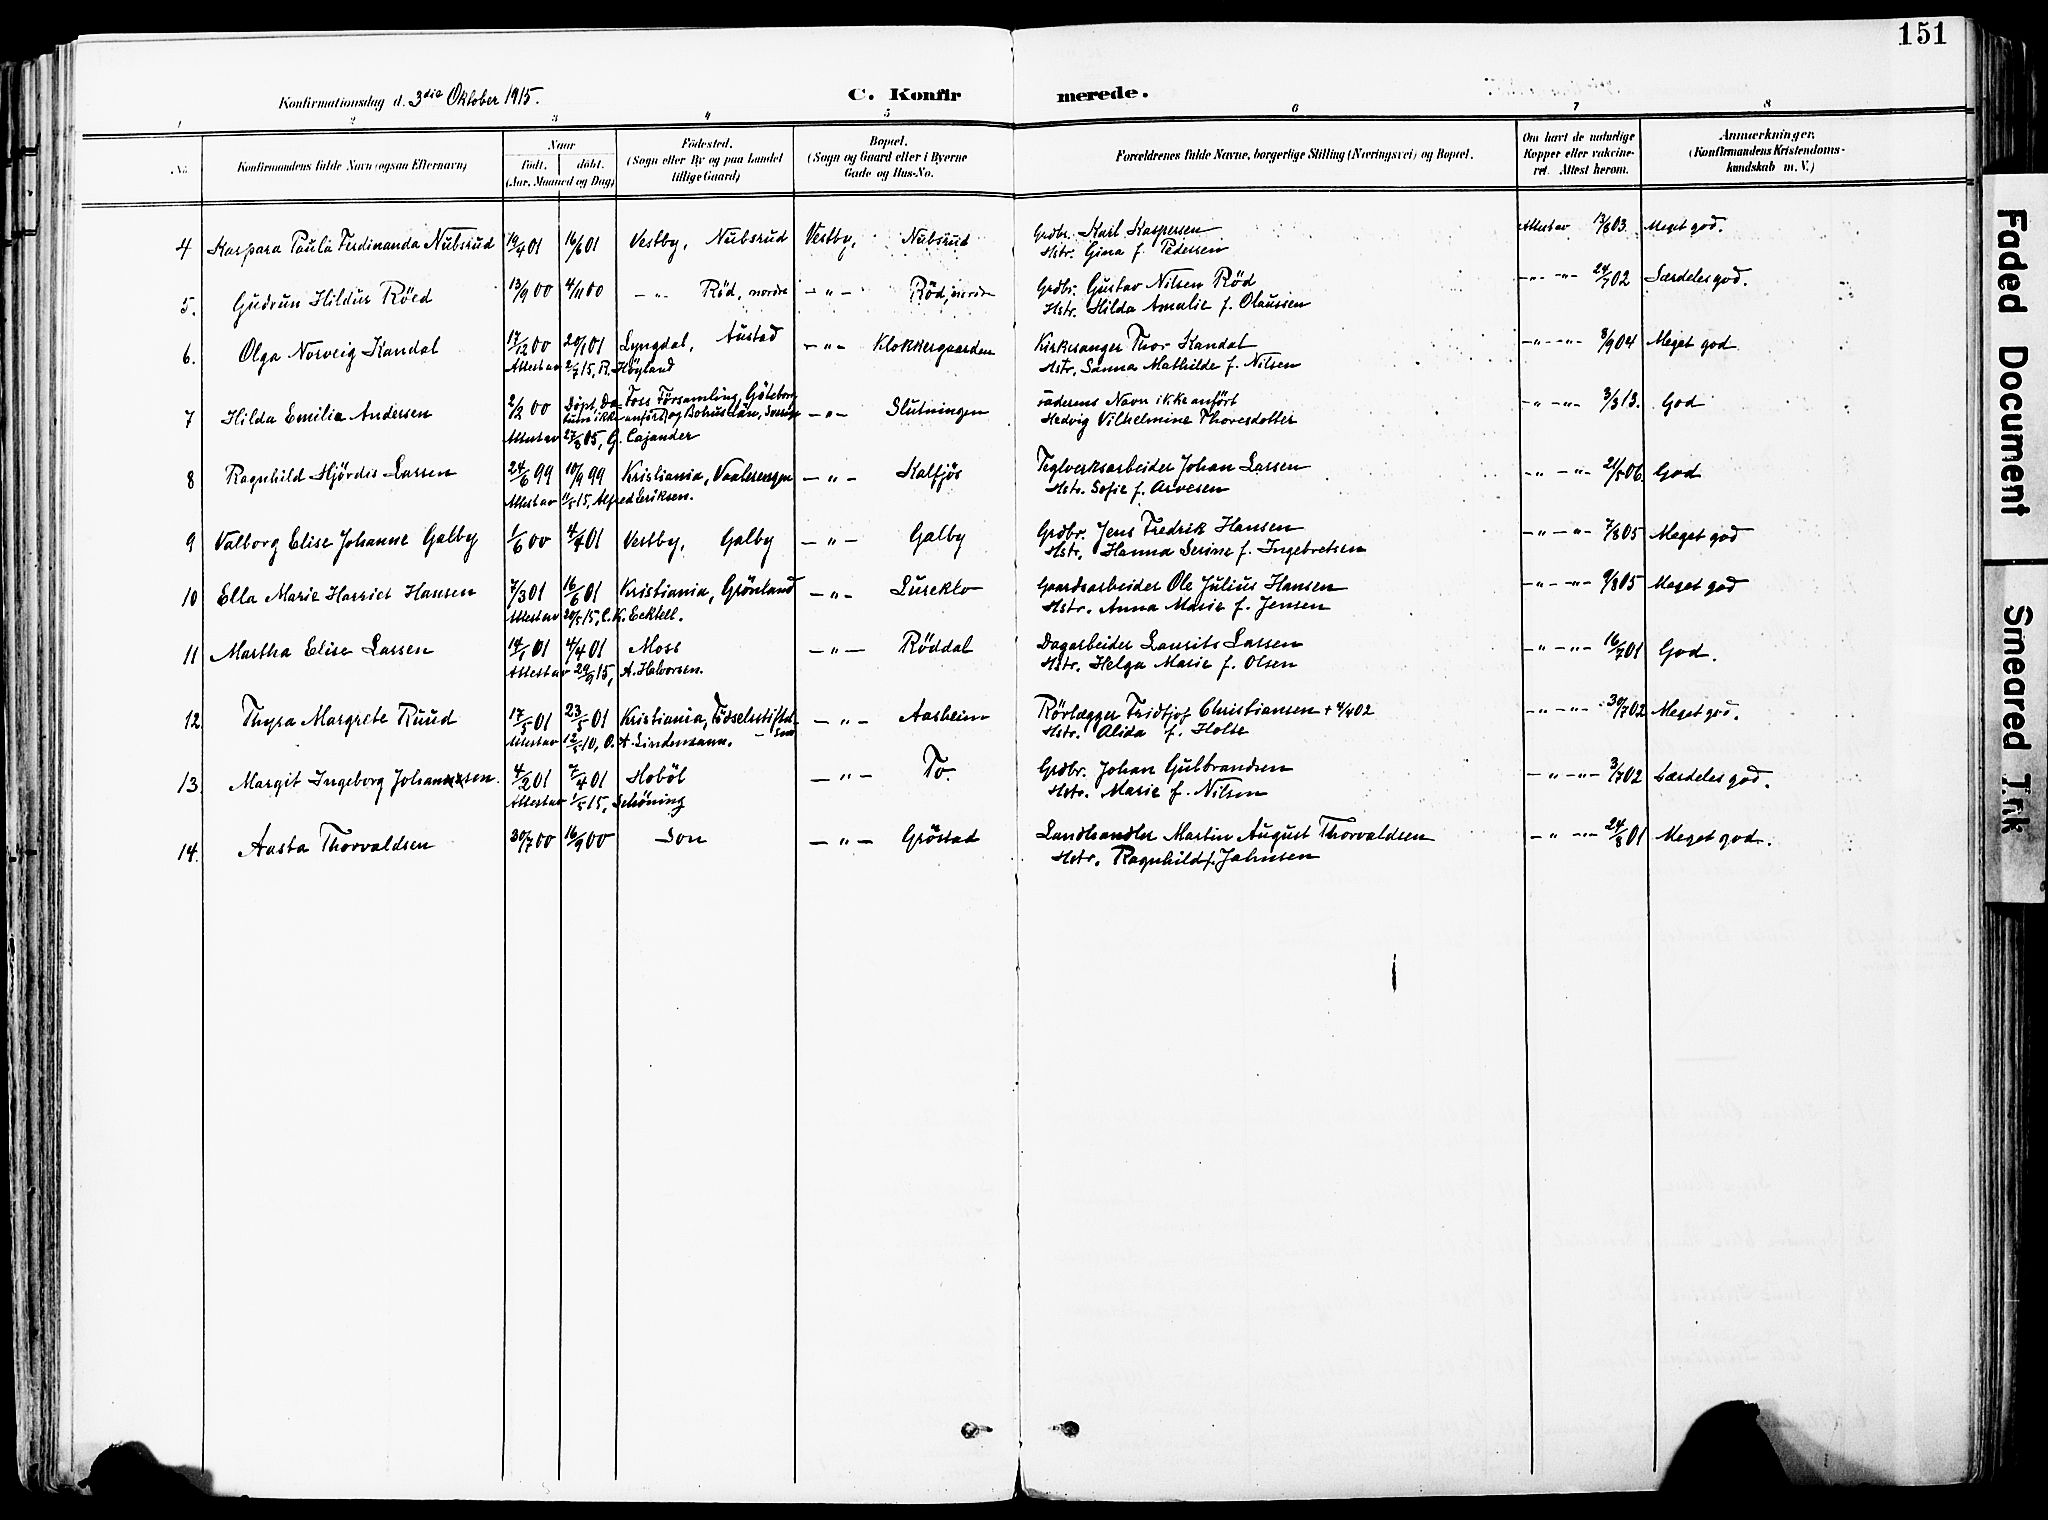 151
Konfirmationsdag d. 3die Oktober 1915.
C. Konfir merede.
1 2 3 4 5 6 7 8
No.
Konfirmandens fulde Navn (ogsaa Efternavn)
Naar
født. døbt.
(Aar, Maaned og Dag)
Fødested.
(Sogn eller By og paa Landet
tillige Gaard)
Bopæl.
(Sogn og Gaard eller i Byerne
Gade og Hus-No.
Forældrenes fulde Navne, borgerlige Stilling (Næringsvei) og Bopæl.
Om havt de naturlige
Kopper eller vakcine-
ret. Attest herom.
Anmærkninger.
(Konfirmandens Kristendoms-
kundskab m. V.)
4 Kaspara Paula Ferdinanda Nubsrud 19/4 01 16/6 01 Vestby, Nubsrud Vestby, Nubsrud Grdbr. Karl Kaspersen Attest av 17/8 03. Meget god.
Hstr. Gina f. Pedersen
5. Gudrun Hildur Röed 13/9 00 4/11 00 - " - Röd, nordre - " - Röd, nordre Grdbr. Gustav Nilsen Röd - " - " - 24/7 02 Særdeles god.
Hstr. Hilda Amalie f. Olaussen
6. Olga Norveig Kandal 17/12 00 20/1 01 Lyngdal, Austad - " - Klokkergaarden Kirkesanger Thor Kandal - " - " - 8/9 04 Meget god
Attest av 2/7 15, R. Höyland Hstr. Sanna Mathilde f. Nilsen
7 Hilda Emilia Andersen 2/2 00 Döpt. Da- Foss Församling, Göteborg - " - Slutningen Faderens Navn ikke anfört - " - " - 3/3 13. God
tum ikke anfört og Bohuslän, Sverige Hedvig Vilhelmine Thoresdotter
Attest av 27/8 05, G. Cajander
8 Ragnhild Hjördis Larsen 24/6 99 10/9 99 Kristiania, Vaalerengen - " - Kalfjös Teglverksarbeider Johan Larsen - " - " - 21/5 06. God
Attest av 11/5 15, Alfred Eriksen. Hstr. Sofie f. Arvesen
9 Valborg Elise Johanne Galby 1/6 00 4/4 01 Vestby, Galby - " - Galby Grdbr. Jens Fredrik Hansen - " - " - 7/8 05 Meget god
Hstr. Hanna Serine f. Ingebretsen
10 Ella Marie Harriet Hansen 7/3 01 16/6 01 Kristiania, Grönland - " - Gaardsarbeider Ole Julius Hansen - " - " - 9/8 05 Meget god
Attest av 20/5 15, Hstr. Anna Marie f. Jensen
11 Martha Elise Larsen 14/1 01 4/4 01 Moss - " - Röddal Dagarbeider Laurits Larsen - " - " - 16/7 01 God.
Attest av 29/9 15, A. Halvorsen. Hstr. Helga Marie f. Olsen
12 Thyra Margrete Ruud 17/5 01 23/5 01 Kristiania, Födselsstiftel- - " - Aasheim Rörlægger Fridtjof Christiansen + 4/4 02 - " - " - 30/7 02 Meget god.
sen
Attest av 12/5 10, O. A. Lindemann. Hstr. Alida f. Holte
13. Margit Ingeborg Johannesen. 4/2 01 7/4 01 Hobøl - " - To. Grdbr. Johan Gulbrandsen - " - " - 3/7 02 Særdeles god.
Attest av 1/5 15, Schöning Hstr. Marie f. Nilsen
14. Aasta Thorvaldsen 30/7 00 16/9 00 Son - " - Gröstad Landhandler Martin August Thorvaldsen - " - " - 24/8 01 Meget god.
Hstr. Ragnhild f. Johnsen
Faded Document
Smeared Ink